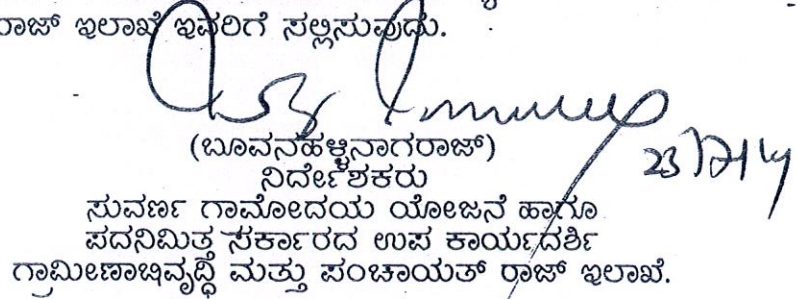 ರಾಜ್ ಇಲಾಖೆ ಇವರಿಗೆ ಸಲ್ಲಿಸುವುದು.
(ಬೂವನಹಳ್ಳಿನಾಗರಾಜ್)
ನಿರ್ದೇಶಕರು
ಸುವರ್ಣ ಗಾಮೋದಯ ಯೋಜನೆ ಹಾಗೂ
ಪದನಿಮಿತ್ತ ಸರ್ಕಾರದ ಉಪ ಕಾರ್ಯದರ್ಶಿ
ಗ್ರಾಮೀಣಾಭಿವೃದ್ಧಿ ಮತ್ತು ಪಂಚಾಯತ್ ರಾಜ್ ಇಲಾಖೆ.